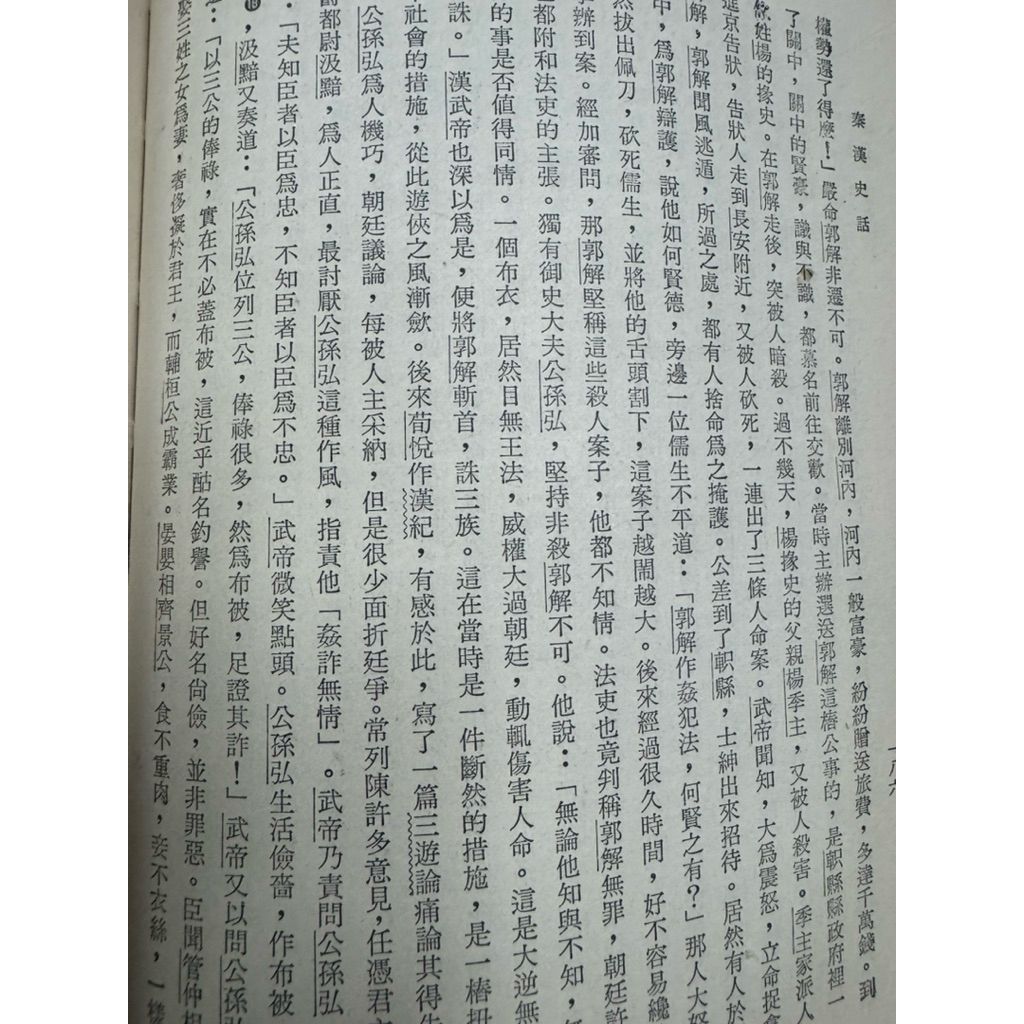 秦漢史話
權勢還了得麼！」嚴命郭解非遷不可。郭解離別河內，河內一般富豪，紛紛贈送旅費，多達千萬錢。到
了關中，關中的賢豪，識與不識，都慕名前往交歡。當時主辦選送郭解這樁公事的，是軹縣縣政府裡一
姓楊的掾史。在郭解走後，突被人暗殺。過不幾天，楊掾史的父親楊季主，又被人殺害。季主家派人
進京告狀，告狀人走到長安附近，又被人砍死，一連出了三條人命案。武帝聞知，大為震怒，立命捉拿
解，郭解聞風逃遁，所過之處，都有人捨命為之掩護。公差到了軹縣，士紳出來招待。居然有人於
中，為郭解辯護，說他如何賢德，旁邊一位儒生不平道：「郭解作姦犯法，何賢之有？」那人大怒
然拔出佩刀，砍死儒生，並將他的舌頭割下，這案子越鬧越大。後來經過很久時間，好不容易纔
辦到案。經加審問，那郭解堅稱這些殺人案子，他都不知情。法吏也竟判稱郭解無罪，朝廷許
都附和法吏的主張。獨有御史大夫公孫弘，堅持非殺郭解不可。他說：「無論他知與不知，
的事是否值得同情。一個布衣，居然目無王法，威權大過朝廷，動輒傷害人命。這是大逆無
誅。」漢武帝也深以為是，便將郭解斬首，誅三族。這在當時是一件斷然的措施，是一樁扭
社會的措施，從此遊俠之風漸歛。後來荀悅作漢紀，有感於此，寫了一篇三遊論痛論其得失
公孫弘為人機巧，朝廷議論，每被人主采納，但是很少面折廷爭。常列陳許多意見，任憑君
都尉汲黯，為人正直，最討厭公孫弘這種作風，指責他「姦詐無情」。武帝乃責問公孫弘
：「夫知臣者以臣為忠，不知臣者以臣為不忠。」武帝微笑點頭。公孫弘生活儉嗇，作布被
，汲黯又奏道：「公孫弘位列三公，俸祿很多，然為布被，足證其詐！」武帝又以問公孫弘
：「以三公的俸祿，實在不必蓋布被，這近乎酤名釣譽。但好名尚儉，並非罪惡。臣聞管仲相
娶三姓之女為妻，奢侈擬於君王，而輔桓公成霸業。晏嬰相齊景公，食不重肉，妾不衣絲，一樣